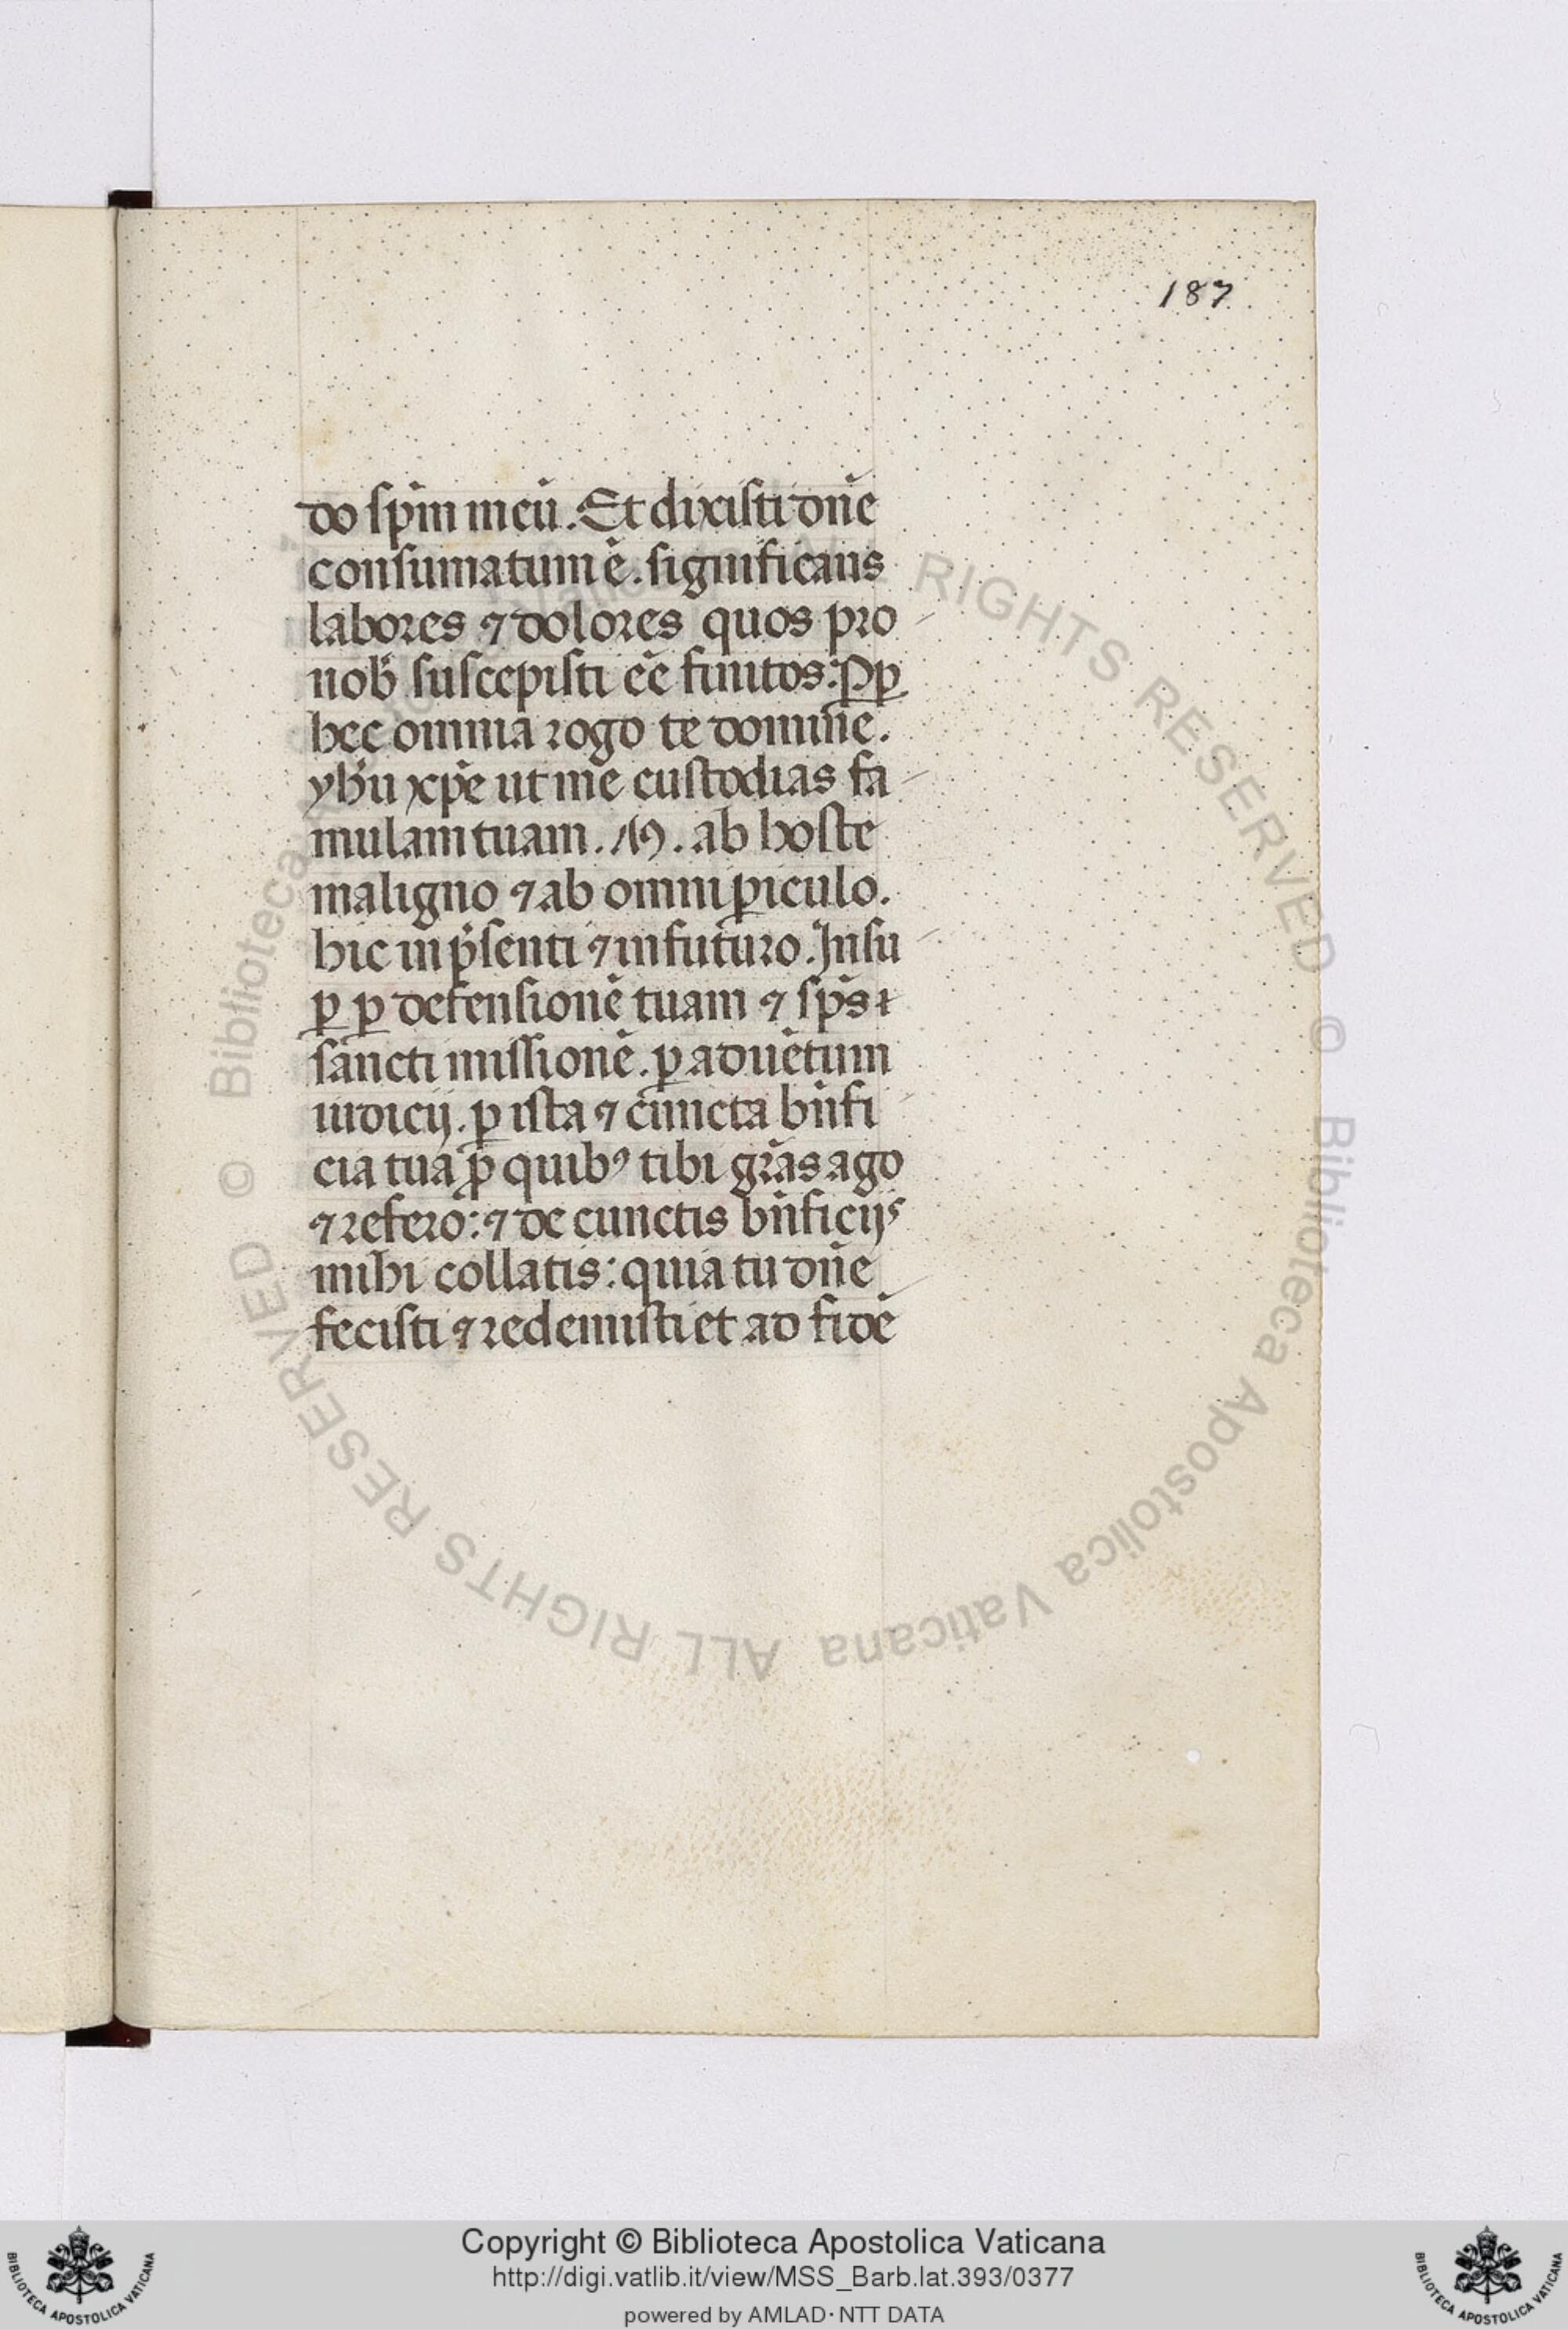 187
do sp̄m meū. Et dixisti dn̄e
consumatum ē. significans
labores ⁊ dolores quos pro
nob̄ suscepisti eē finitos: Pp̱
hec omnia rogo te domine.
yhū xp̄e ut me custodias fa
mulam tuam. N. ab hoste
maligno ⁊ ab omni ꝑiculo.
hic in p̄senti ⁊ in futuro. Insu
ꝑ ꝑ defensionē tuam ⁊ sp̄s ı
sancti missionē. ꝑ aduētum
iudicij. ꝑ ista ⁊ cuncta bn̄fi
cia tua p̄ quibꝰ tibi gr̄as ago
⁊ refero: ⁊ de cunctis bn̄ficijs
mihi collatis: quia tu dn̄e
fecisti ⁊ redemisti et ad fidē
© Biblioteca Apostolica Vaticana ALL RIGHTS RESERVED © Biblioteca
RIGHTS RESERVED
Copyright © Biblioteca Apostolica Vaticana
http://digi.vatlib.it/view/MSS_Barb.lat.393/0377
powered by AMLAD·NTT DATA
BIBLIOTECA APOSTOLICA VATICANA
BIBLIOTECA APOSTOLICA VATICANA